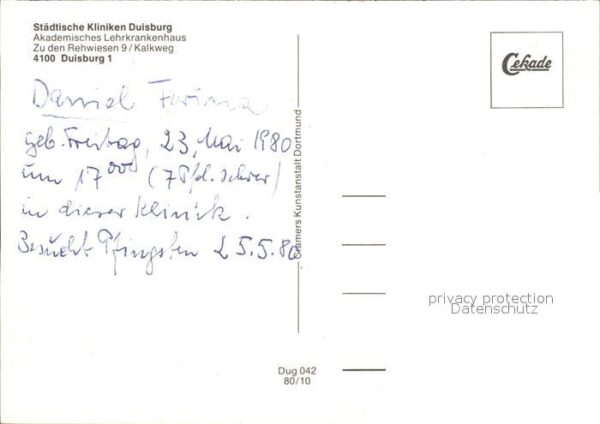 Städtische Kliniken Duisburg
Akademisches Lehrkrankenhaus
Zu den Rehwiesen 9 / Kalkweg
4100 Duisburg 1
Cekade
Daniel
geb. Freitag, 23. Mai 1980
um 17⁰⁰ (7 Pfd. schwer)
in dieser Klinik.
Besucht Pfingsten 25.5.80
Cramers Kunstanstalt Dortmund
privacy protection
Datenschutz
Dug 042
80/10